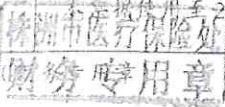 株洲市医疗保险处
财务专用章